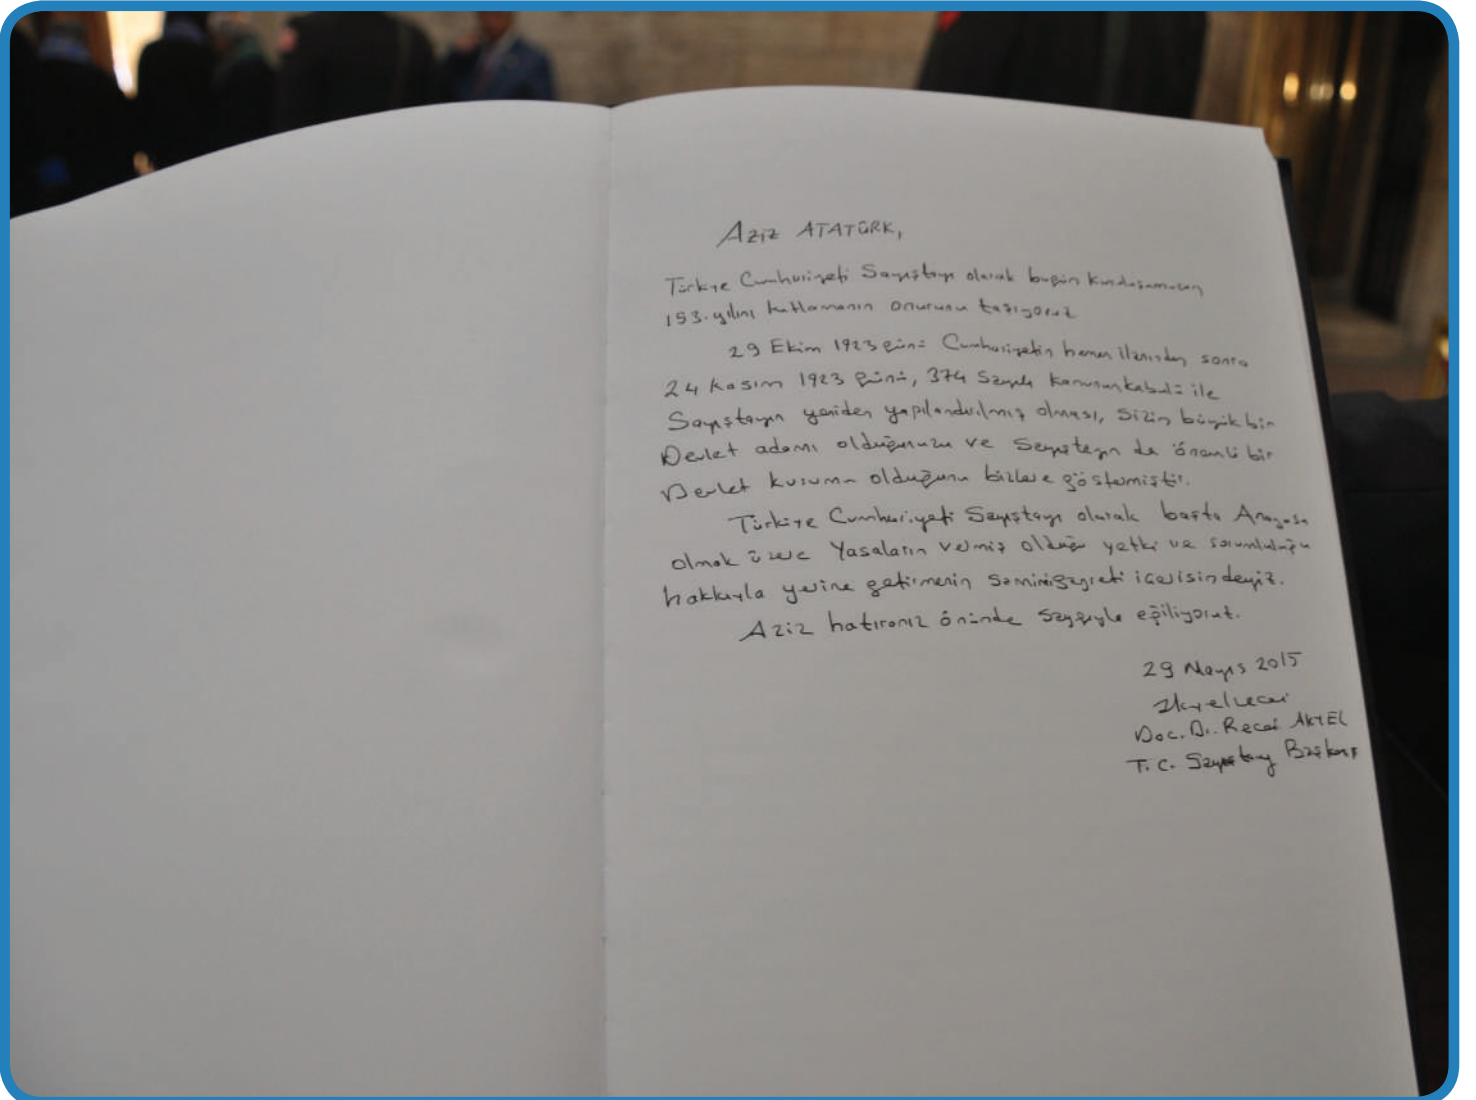 Aziz ATATÜRK,
Türkiye Cumhuriyeti Sayıştayı olarak bugün kuruluşumuzun
153. yılını kutlamanın onurunu taşıyoruz
29 Ekim 1923 günü Cumhuriyetin hemen ilanından sonra
24 Kasım 1923 günü, 374 Sayılı kanunun kabulü ile
Sayıştayın yeniden yapılandırılmış olması, Sizin büyük bir
Devlet adamı olduğunuzu ve Sayıştayın da önemli bir
Devlet kurumu olduğunu bizlere göstermiştir.
Türkiye Cumhuriyeti Sayıştayı olarak başta Anayasa
olmak üzere Yasaların vermiş olduğu yetki ve sorumluluğu
hakkıyla yerine getirmenin samimi gayreti içerisindeyiz.
Aziz hatıranız önünde saygıyla eğiliyoruz.
29 Mayıs 2015
Doç. Dr. Recai AKYEL
T.C. Sayıştay Başkanı